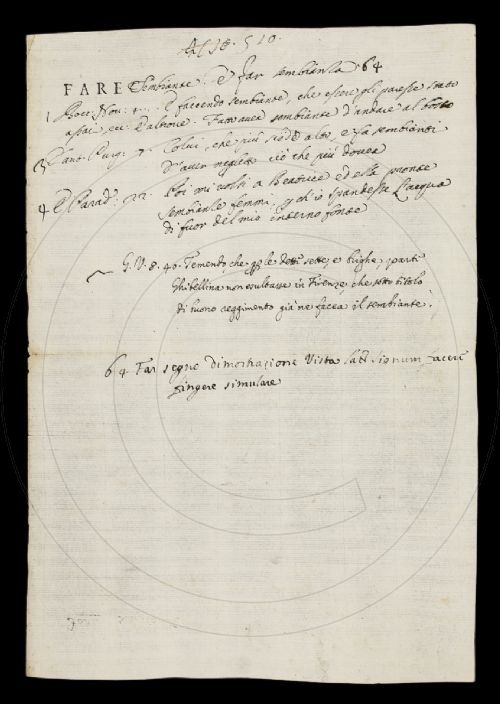 510.
FARE Sembiante. e far sembianza 64
1 Bocc. Nov. 4. E faccendo sembiante, che esser gli paresse stato
assai colei, altrove. Fatto avea sembiante d'andare al bosco
3 Dant. Purg. 7. Colui, che più siede alto, e fa sembianti
D'aver negletto ciò che più dovea
4 E Parad. 24. Poi mi volsi a Beatrice ed ella pronte
Sembianze femmi, perch'io spandessi l'acqua
di fuor del mio interno fonte
G. V. 8. 40. Temendo, che per le dette sette, e brighe, parte
Ghibellina non esultasse in Firenze, che sotto titolo
di buono reggimento già ne facea il sembiante.
64 Far segno dimostrazione Vista lat. signum facere
fingere simulare